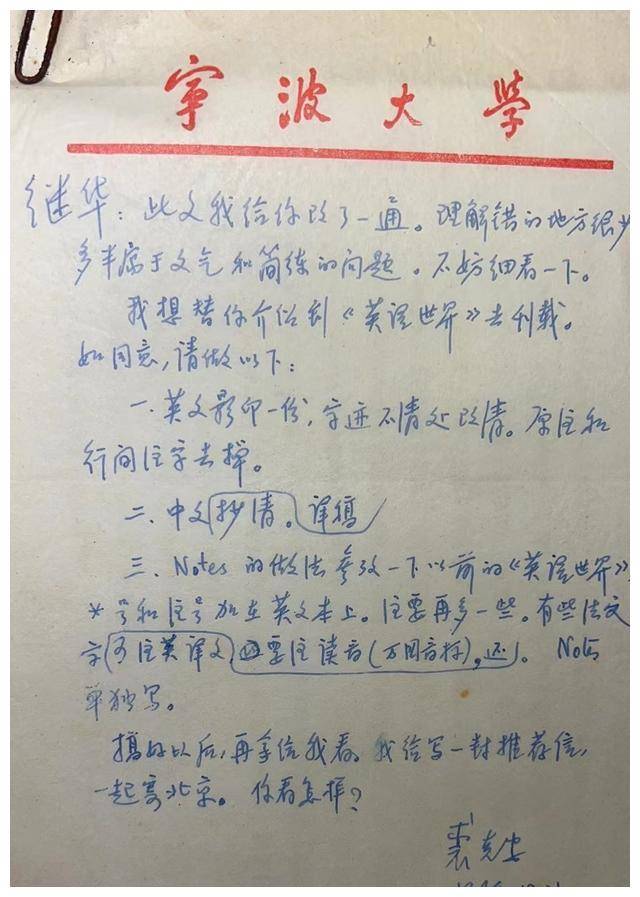 宁波大学
继华：此文我给你改了一通。理解错的地方很少
多半属于文气和简练的问题。不妨细看一下。
我想替你介绍到《英语世界》去刊载。
如同意，请做以下：
一、英文影印一份，字迹不清处改清。原注和
行间注字去掉。
二、中文抄清。译稿
三、Notes 的做法参考一下以前的《英语世界》，
*号和注号加在英文本上。注要再多一些。有些法文
字可注英译文，要注读音（万国音标），还。 Notes
单独写。
搞好以后，再拿给我看。我给写一封推荐信，
一起寄北京。你看怎样？
裘克安